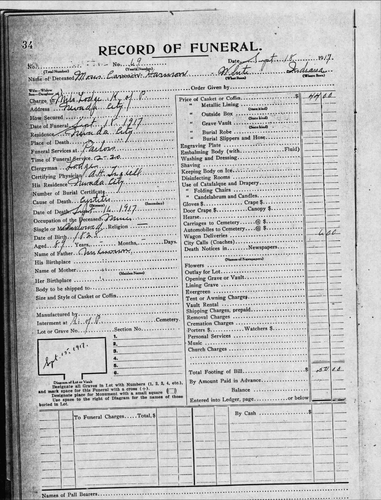 34
RECORD OF FUNERAL.
No. No. 69 Date Sept 18 1917.
(Total Number) (Yearly Number)
Name of Deceased Harrison White Indiana
(What Race) (Where Born)
Order Given by
Charge to Lodge K. of P.
Address Nevada City
How Secured
Date of Funeral Sept 18, 1917
Residence Nevada City
Place of Death
Funeral Services at Parlor
Time of Funeral Service 2-30
Clergyman Lodge
Certifying Physician
His Residence Nevada City
Number of Burial Certificate
Cause of Death Cystitis
Date of Death Sept 16, 1917.
Occupation of the Deceased Miner
Single or Religion
Date of Birth 1828
Aged 89 Years, Months, Days.
Name of Father Unknown
His Birthplace
Name of Mother
(Maiden Name)
Her Birthplace
Body to be shipped to
Size and Style of Casket or Coffin
Manufactured by
Interment at K. of P. Cemetery.
Lot or Grave No. Section No.
1.
2.
3.
4.
5.
6.
Sept 18, 1917.
Diagram of Lot or Vault
Designate all Graves in Lot with Numbers (1, 2, 3, 4, etc.), and mark space for this Funeral with a cross (x).
Designate place for Monument with a small square
Use space to the right of Diagram for the names of those buried in Lot.
Price of Casket or Coffin 44 00
" Metallic Lining
" Outside Box
" Grave Vault
" Burial Robe
" Burial Slippers and Hose
Engraving Plate
Embalming Body (with Fluid)
Washing and Dressing
Shaving
Keeping Body on Ice
Disinfecting Rooms
Use of Catafalque and Drapery
" Folding Chairs
" Candelabrum and Candles
Gloves $ Crape $
Door Crape $ Canopy $
Hearse
Carriages to Cemetery @ $
Automobiles to Cemetery @ $
Wagon Deliveries 6 00
City Calls (Coaches)
Death Notices in Newspapers
(Names of Newspapers)
Flowers
Outlay for Lot
Opening Grave or Vault
Lining Grave
Evergreen
Tent or Awning Charges
Vault Rental
Shipping Charges, prepaid
Removal Charges
Cremation Charges
Porters $ Watchers $
Personal Services
Music
Church Charges
Total Footing of Bill, $ 50 00
By Amount Paid in Advance
Balance
Entered into Ledger, page or below
To Funeral Charges Total, $ By Cash $
Names of Pall Bearers